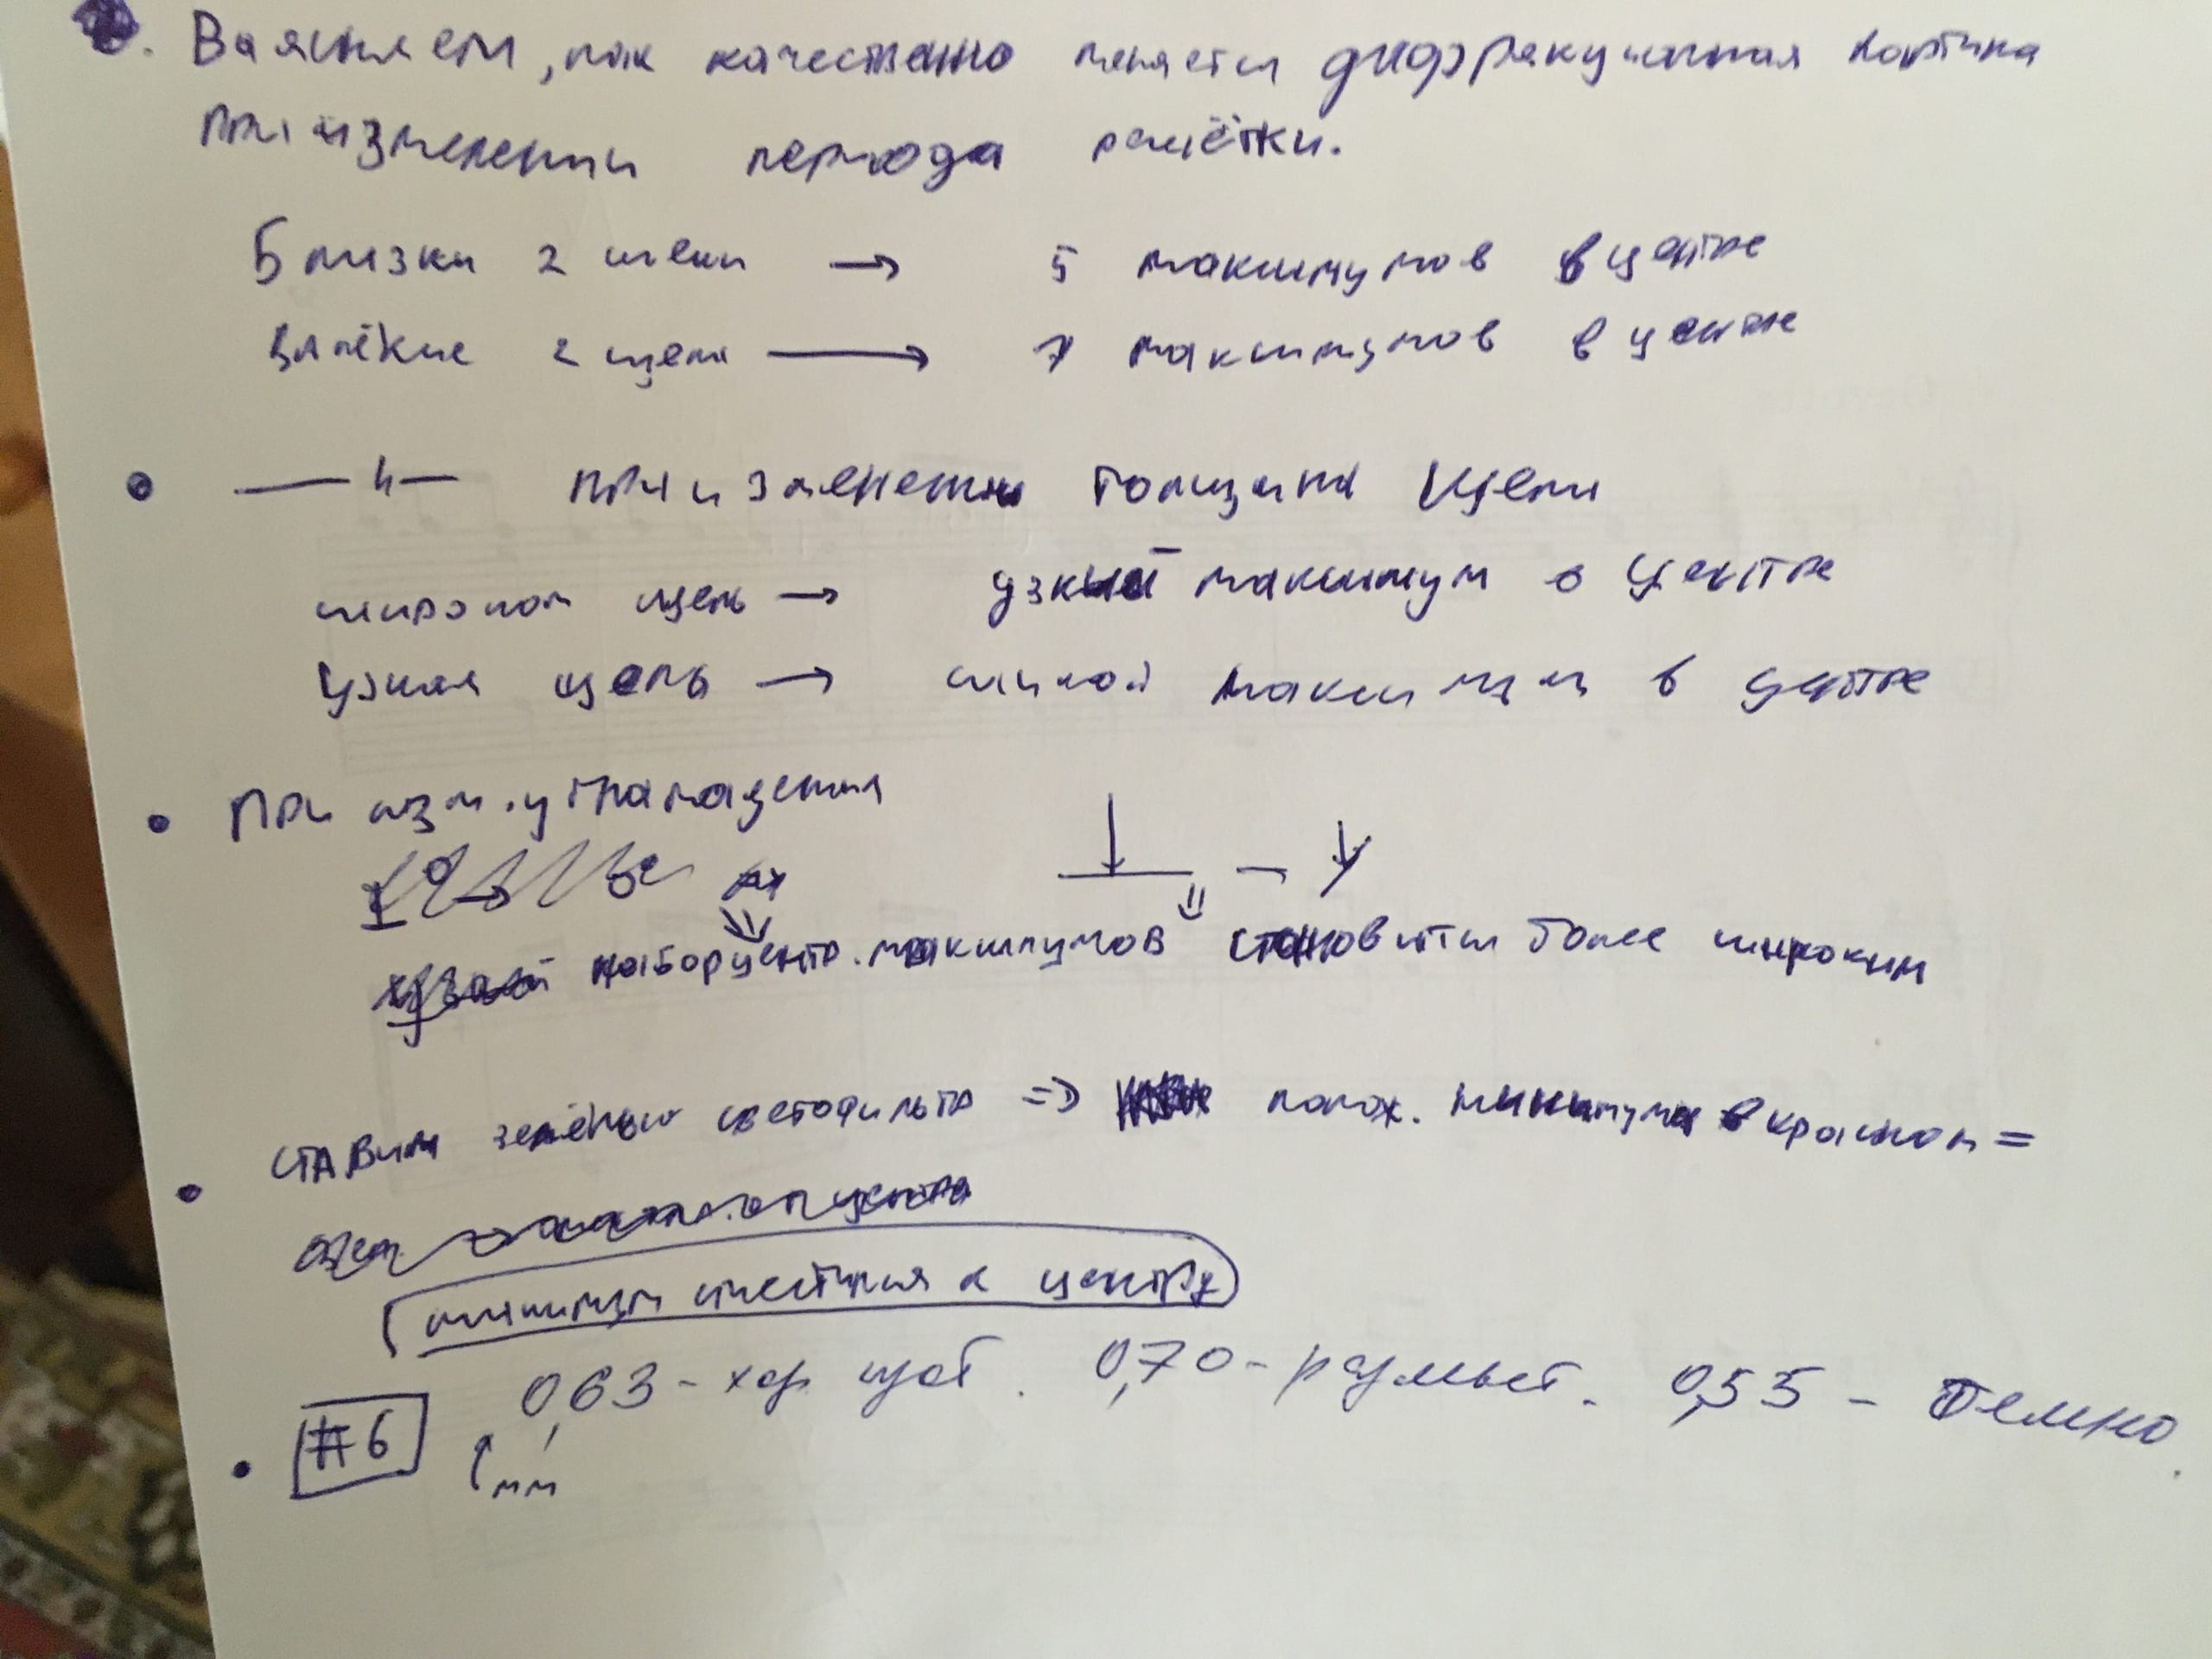 Выясняем, как качественно меняется дифракционная картина
при изменении периода решётки.
Близкие 2 щели → 5 максимумов в центре
Далёкие 2 щели → 7 максимумов в центре
— " — при изменении толщины щели
широкая щель → узкий максимум в центре
Узкая щель → широкий максимум в центре
При изм. угла падения
набор центр. максимумов становится более широким
ставим зелёный светофильтр => полож. минимума в красном =
минимум сместился к центру
#6 0,63 - хор. цвт. 0,70 - размыт. 0,55 - темно
мм